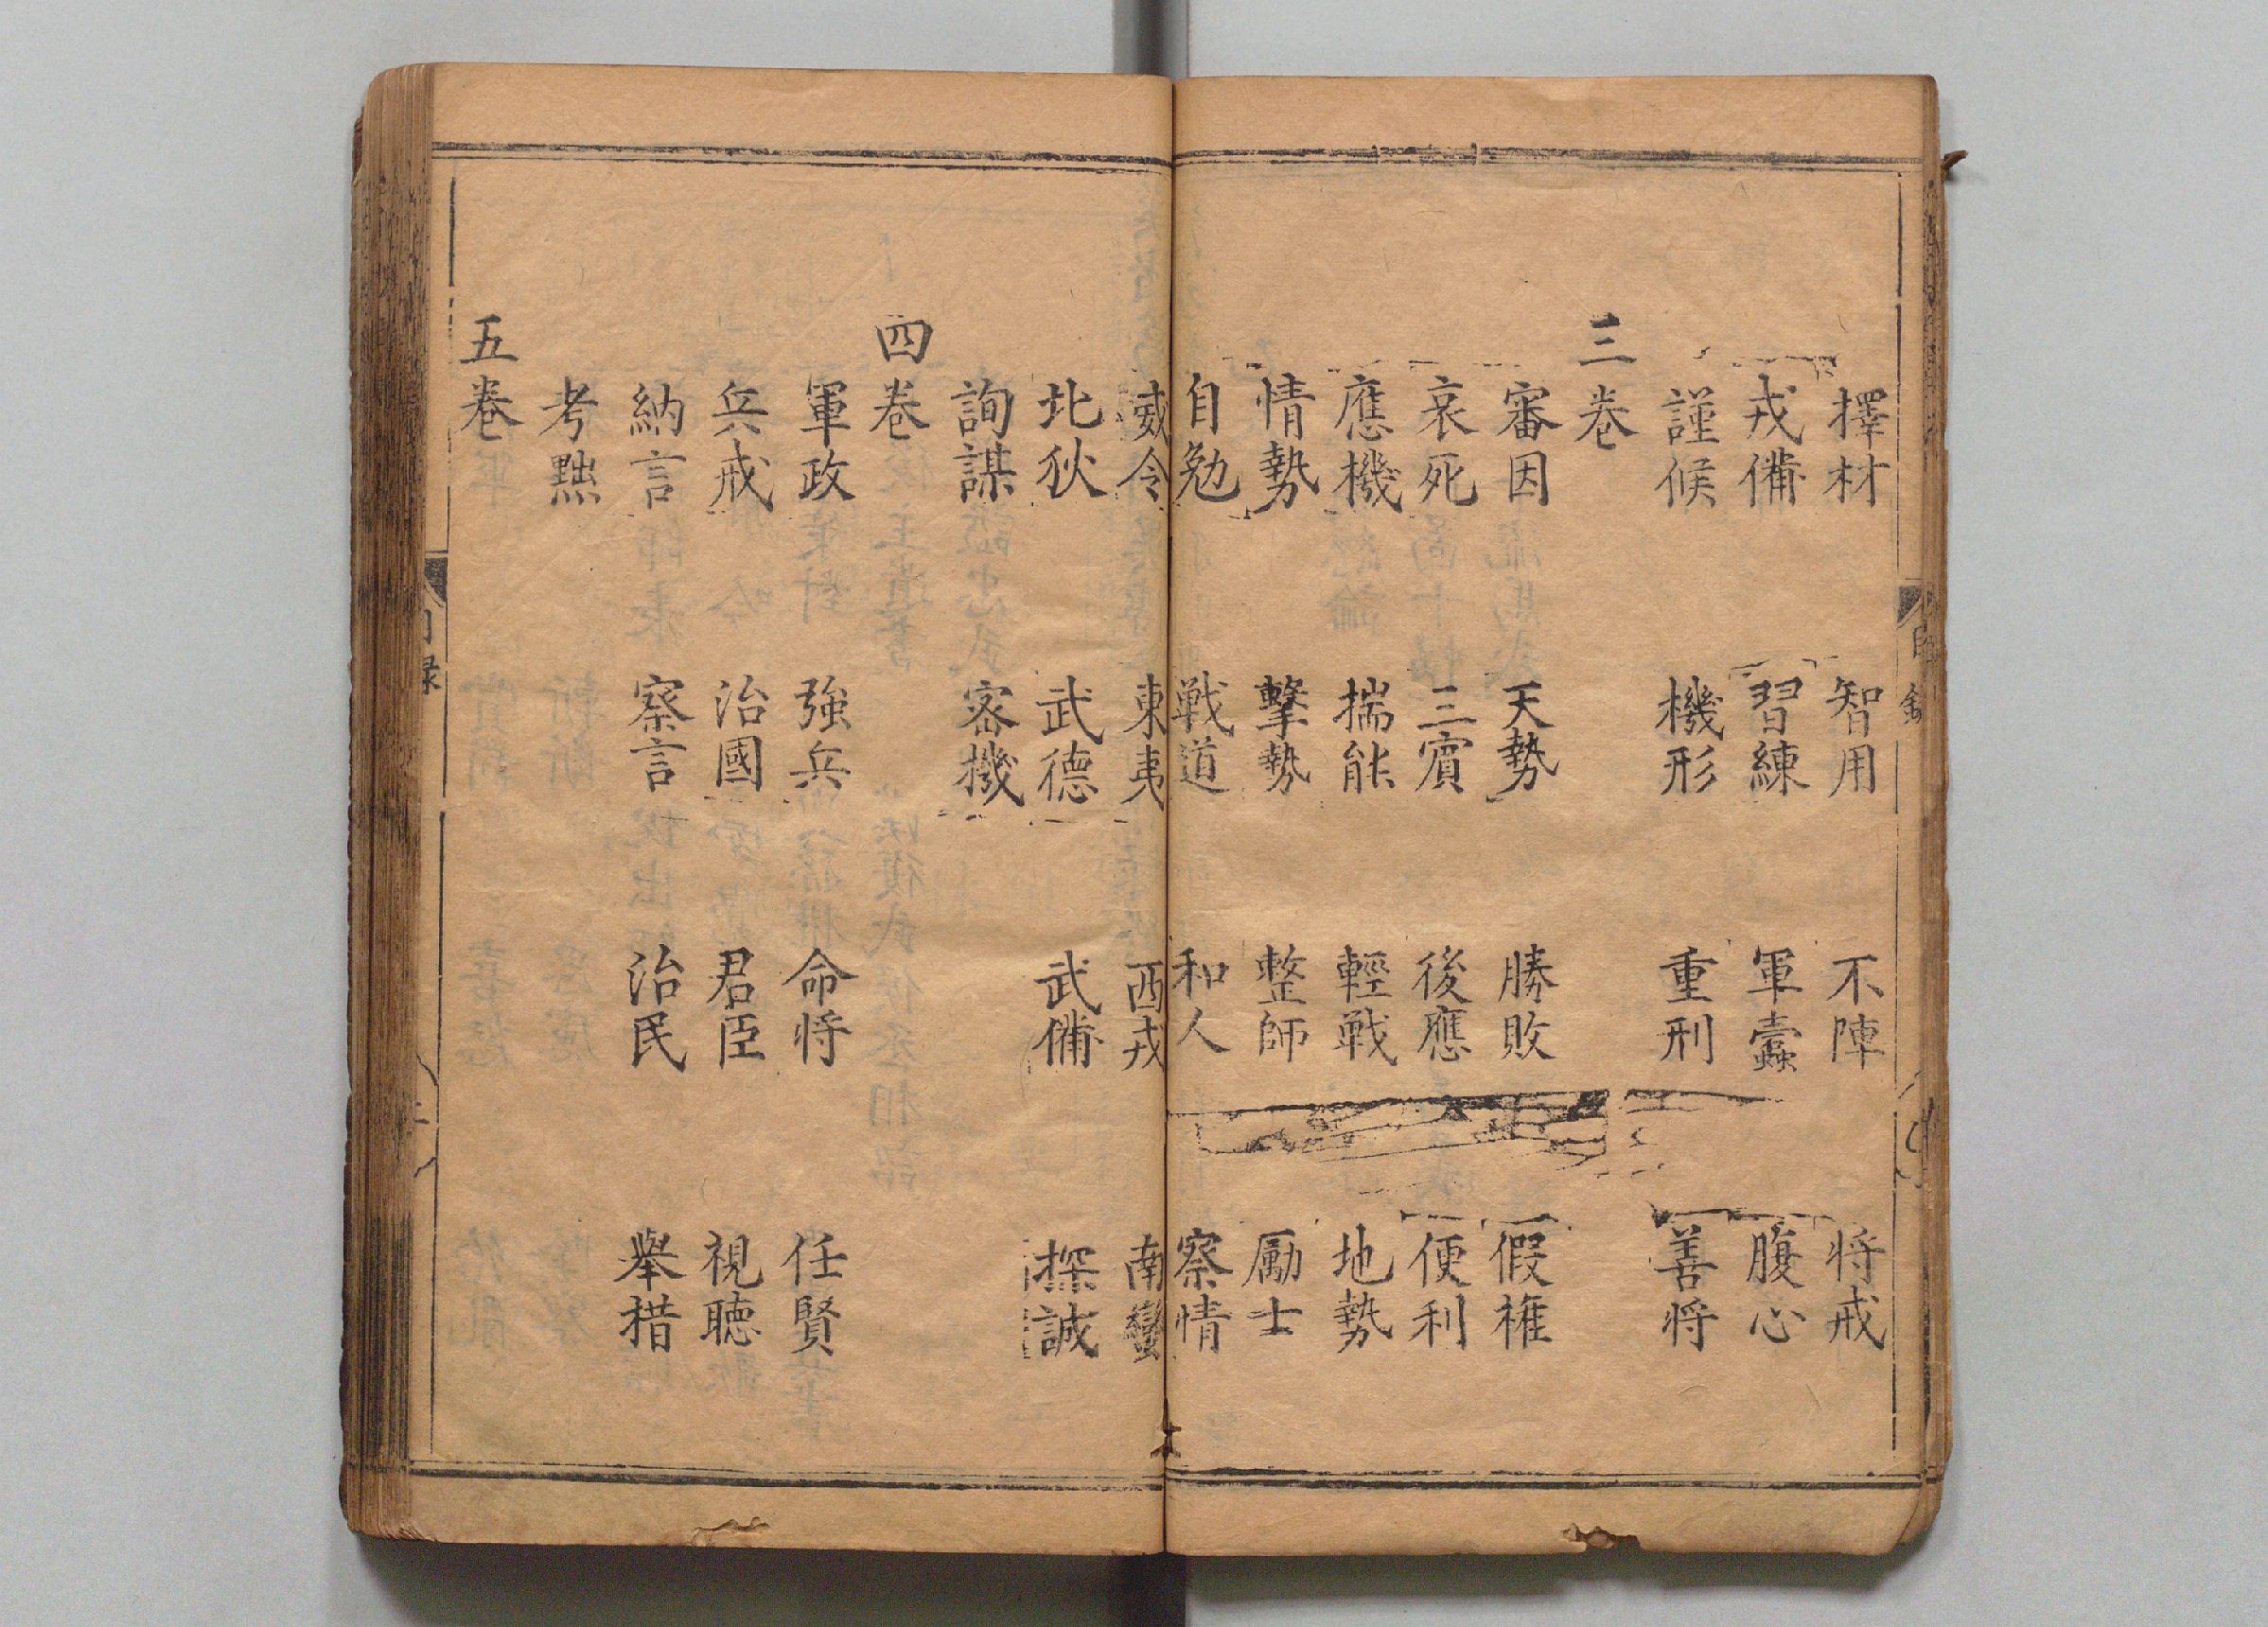 擇材 智用 不陣 将戒
戎備 習練 軍蠹 腹心
謹候 機形 重刑 善将
三巻
審因 天勢 勝敗 假權
哀死 三賔 後應 便利
應機 揣能 輕戦 地勢
情勢 擊勢 整師 厲士
自勉 戦道 和人 察情
威令 東夷 西戎 南蠻
北狄 武德 武備 探誠
詢謀 宻機
四巻
軍政 強兵 命将 任賢
兵戒 治國 君臣 視聴
納言 察言 治民 舉措
考黜
五巻
目録